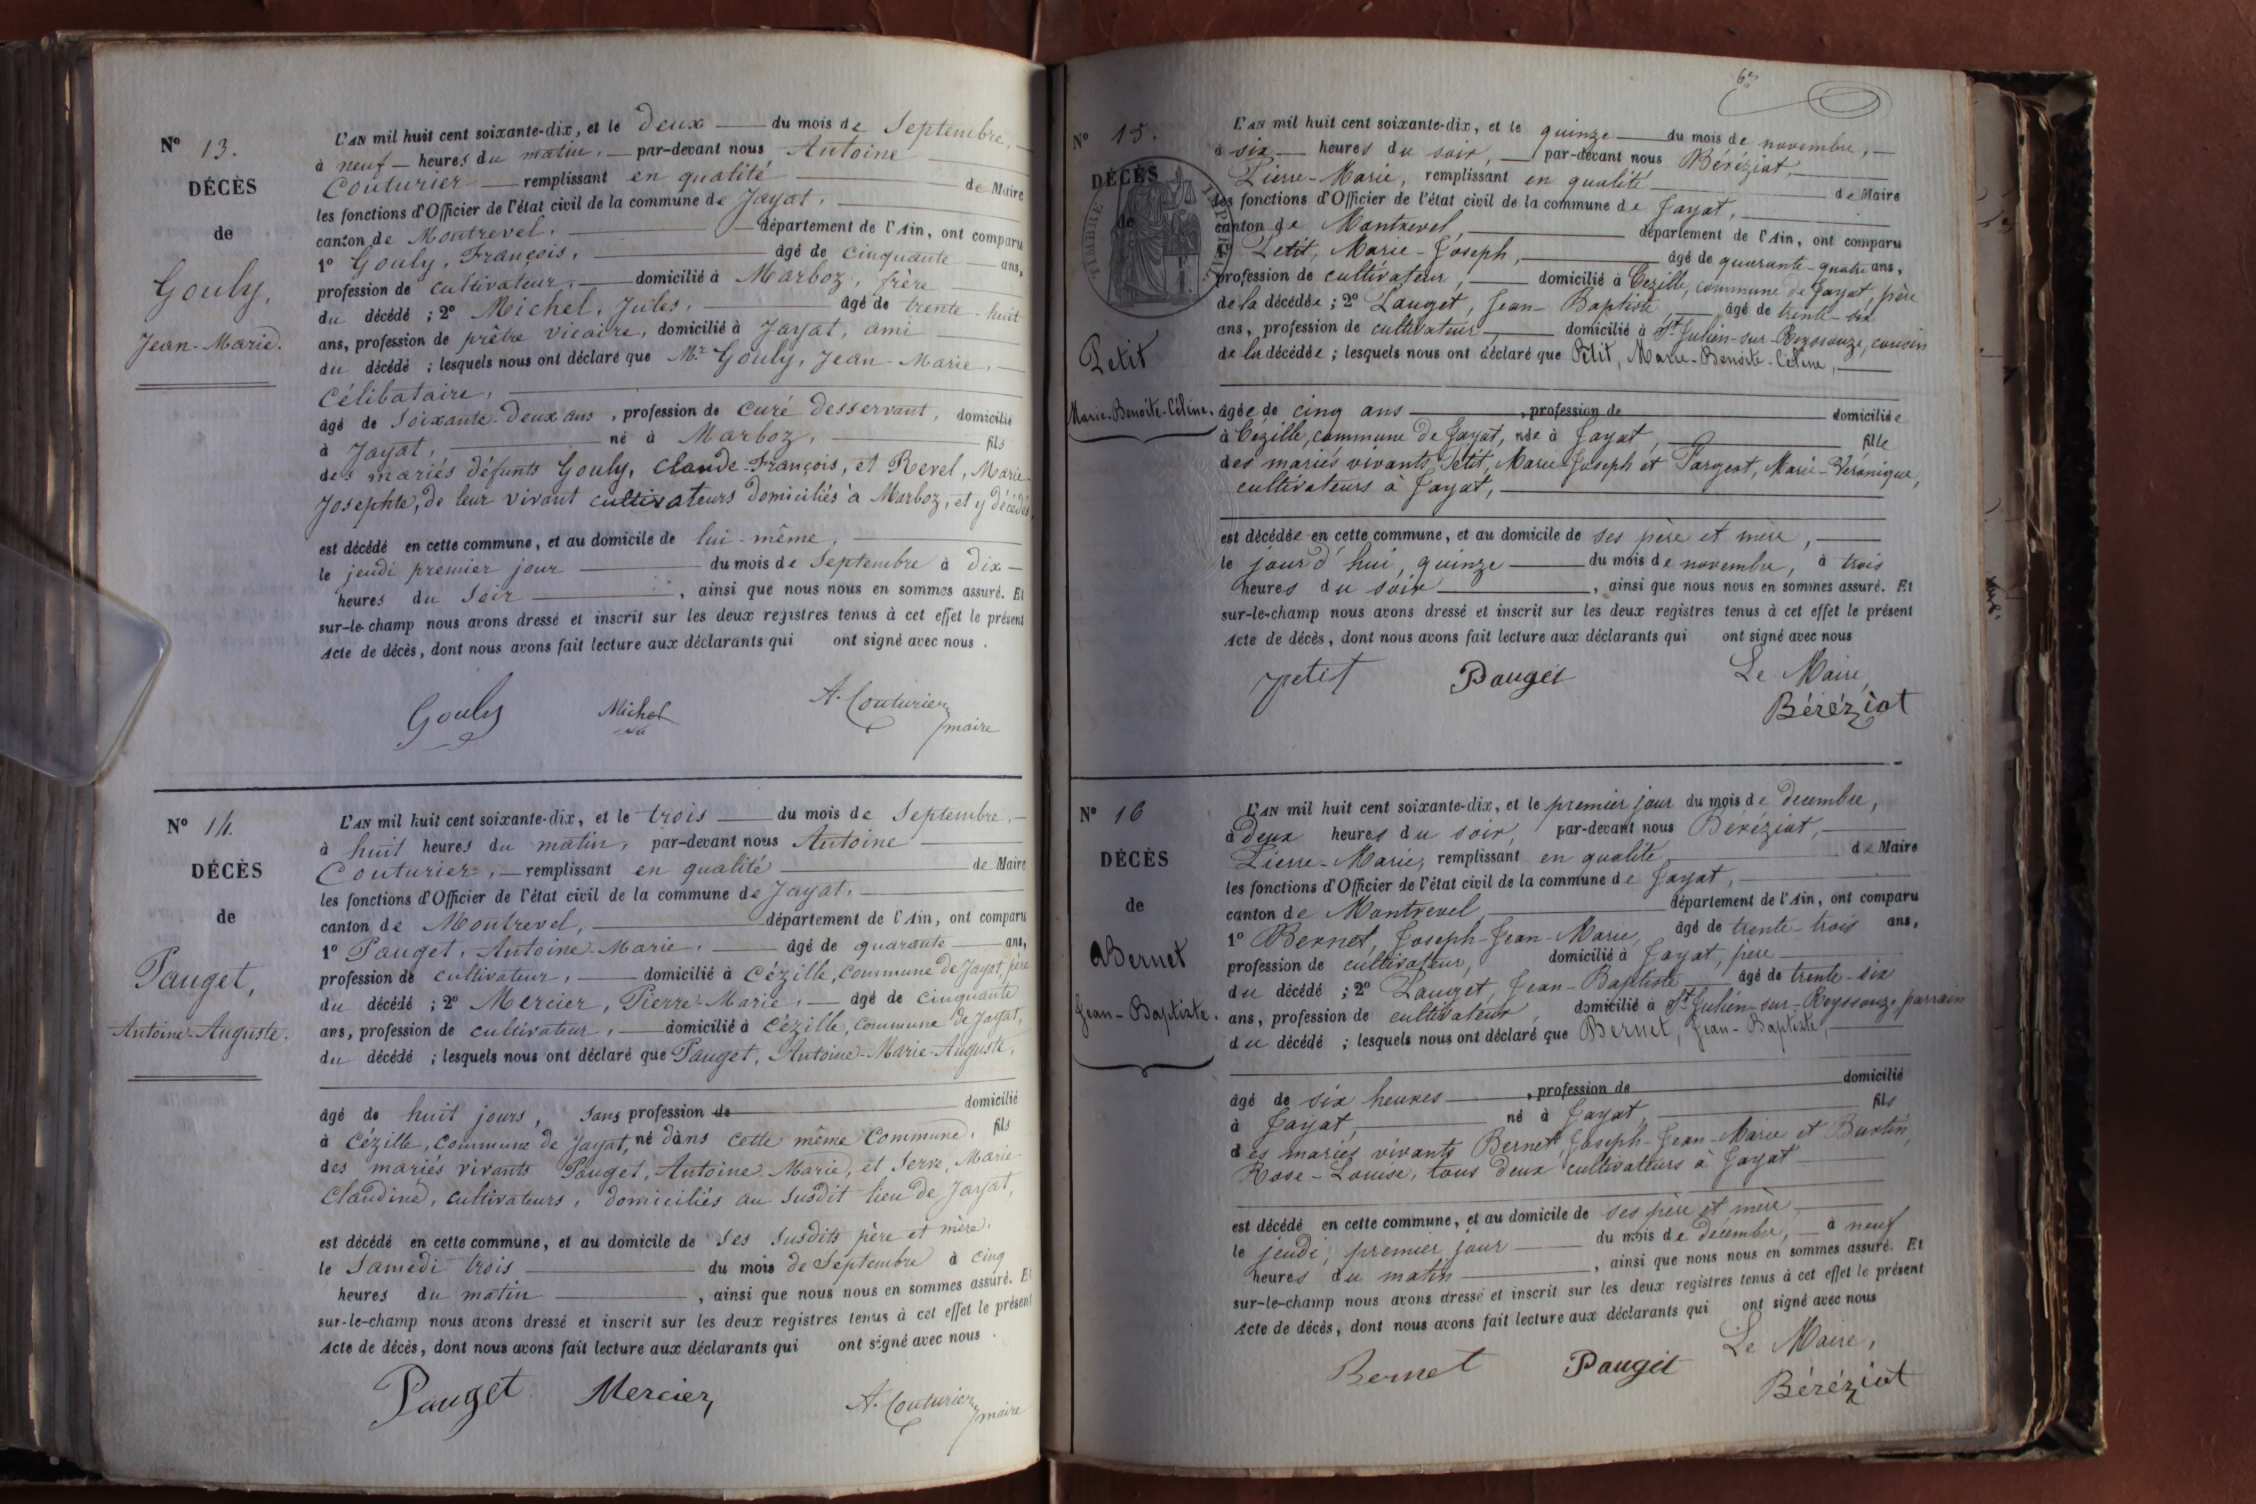 N° 13.
DÉCÈS
de
Gouly,
Jean-Marie.
L'AN mil huit cent soixante-dix, et le deux du mois de Septembre,
à neuf heures du matin, par-devant nous Antoine
Couturier remplissant en qualité de Maire
les fonctions d'Officier de l'état civil de la commune de Jayat,
canton de Montrevel, département de l'Ain, ont comparu
1° Gouly, François, âgé de cinquante ans,
profession de cultivateur, domicilié à Marboz, frère
du décédé ; 2° Michel, Jules, âgé de trente-huit
ans, profession de prêtre vicaire, domicilié à Jayat, ami
du décédé ; lesquels nous ont déclaré que Mr Gouly, Jean-Marie,
Célibataire,
âgé de soixante-deux ans, profession de curé desservant, domicilié
à Jayat, né à Marboz, fils
des mariés défunts Gouly, Claude-François, et Revel, Marie-
Josephte, de leur vivant cultivateurs domiciliés à Marboz, et y décédés,
est décédé en cette commune, et au domicile de lui-même,
le jeudi premier jour du mois de Septembre à dix
heures du Soir, ainsi que nous nous en sommes assuré. Et
sur-le-champ nous avons dressé et inscrit sur les deux registres tenus à cet effet le présent
Acte de décès, dont nous avons fait lecture aux déclarants qui ont signé avec nous.
Gouly Michel A. Couturier
maire
N° 14.
DÉCÈS
de
Pauget,
Antoine-Auguste.
L'AN mil huit cent soixante-dix, et le trois du mois de Septembre,
à huit heures du matin, par-devant nous Antoine
Couturier, remplissant en qualité de Maire
les fonctions d'Officier de l'état civil de la commune de Jayat,
canton de Montrevel, département de l'Ain, ont comparu
1° Pauget, Antoine-Marie, âgé de quarante ans,
profession de cultivateur, domicilié à Cézille, commune de Jayat, père
du décédé ; 2° Mercier, Pierre-Marie, âgé de cinquante
ans, profession de cultivateur, domicilié à Cézille, commune de Jayat,
du décédé ; lesquels nous ont déclaré que Pauget, Antoine-Marie-Auguste,
âgé de huit jours, sans profession de domicilié
à Cézille, commune de Jayat, né dans cette même commune, fils
des mariés vivants Pauget, Antoine-Marie, et Serve, Marie-
Claudine, cultivateurs, domiciliés au susdit lieu de Jayat,
est décédé en cette commune, et au domicile de ses susdits père et mère,
le Samedi trois du mois de Septembre à cinq
heures du matin, ainsi que nous nous en sommes assuré. Et
sur-le-champ nous avons dressé et inscrit sur les deux registres tenus à cet effet le présent
Acte de décès, dont nous avons fait lecture aux déclarants qui ont signé avec nous.
Pauget Mercier A. Couturier
maire
N° 15.
DÉCÈS
de
TIMBRE IMPÉRIAL
Petit
Marie-Benoite-Céline.
L'AN mil huit cent soixante-dix, et le quinze du mois de novembre,
à six heures du soir, par-devant nous Béréziat,
Pierre-Marie, remplissant en qualité de Maire
les fonctions d'Officier de l'état civil de la commune de Jayat,
canton de Montrevel département de l'Ain, ont comparu
1° Petit, Marie-Joseph, âgé de quarante-quatre ans,
profession de cultivateur, domicilié à Cézille, commune de Jayat, père
de la décédée ; 2° Pauget, Jean-Baptiste âgé de trente-six
ans, profession de cultivateur, domicilié à St Julien-sur-Reyssouze, cousin
de la décédée ; lesquels nous ont déclaré que Petit, Marie-Benoite-Céline,
âgée de cinq ans, profession de domiciliée
à Cézille, commune de Jayat, née à Jayat, fille
des mariés vivants Petit, Marie-Joseph et Fargeot, Marie-Véronique,
cultivateurs à Jayat,
est décédée en cette commune, et au domicile de ses père et mère,
le jourd'hui, quinze du mois de novembre, à trois
heures du soir, ainsi que nous nous en sommes assuré. Et
sur-le-champ nous avons dressé et inscrit sur les deux registres tenus à cet effet le présent
Acte de décès, dont nous avons fait lecture aux déclarants qui ont signé avec nous
petit Pauget Le Maire,
Béréziat
N° 16
DÉCÈS
de
Bernet
Jean-Baptiste.
L'AN mil huit cent soixante-dix, et le premier jour du mois de decembre,
à deux heures du soir, par-devant nous Béréziat,
Pierre-Marie, remplissant en qualité de Maire
les fonctions d'Officier de l'état civil de la commune de Jayat,
canton de Montrevel, département de l'Ain, ont comparu
1° Bernet, Joseph-Jean-Marie, âgé de trente-trois ans,
profession de cultivateur, domicilié à Jayat, père
du décédé ; 2° Pauget, Jean-Baptiste âgé de trente-six
ans, profession de cultivateur, domicilié à St Julien-sur-Reyssouze, parrain
du décédé ; lesquels nous ont déclaré que Bernet, Jean-Baptiste,
âgé de six heures, profession de domicilié
à Jayat, né à Jayat, fils
des mariés vivants Bernet, Joseph-Jean-Marie et Burtin,
Rose-Louise, tous deux cultivateurs à Jayat
est décédé en cette commune, et au domicile de ses père et mère,
le jeudi, premier jour du mois de décembre, à neuf
heures du matin, ainsi que nous nous en sommes assuré. Et
sur-le-champ nous avons dressé et inscrit sur les deux registres tenus à cet effet le présent
Acte de décès, dont nous avons fait lecture aux déclarants qui ont signé avec nous
Bernet Pauget Le Maire,
Béréziat